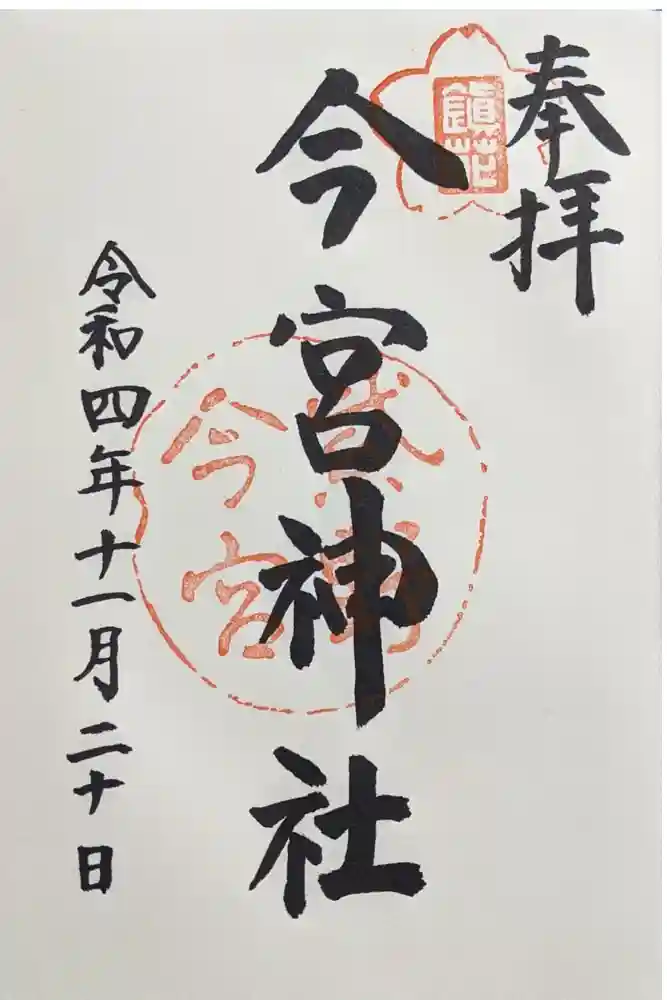 奉拝
今宮神社
令和四年十一月二十日
今宮